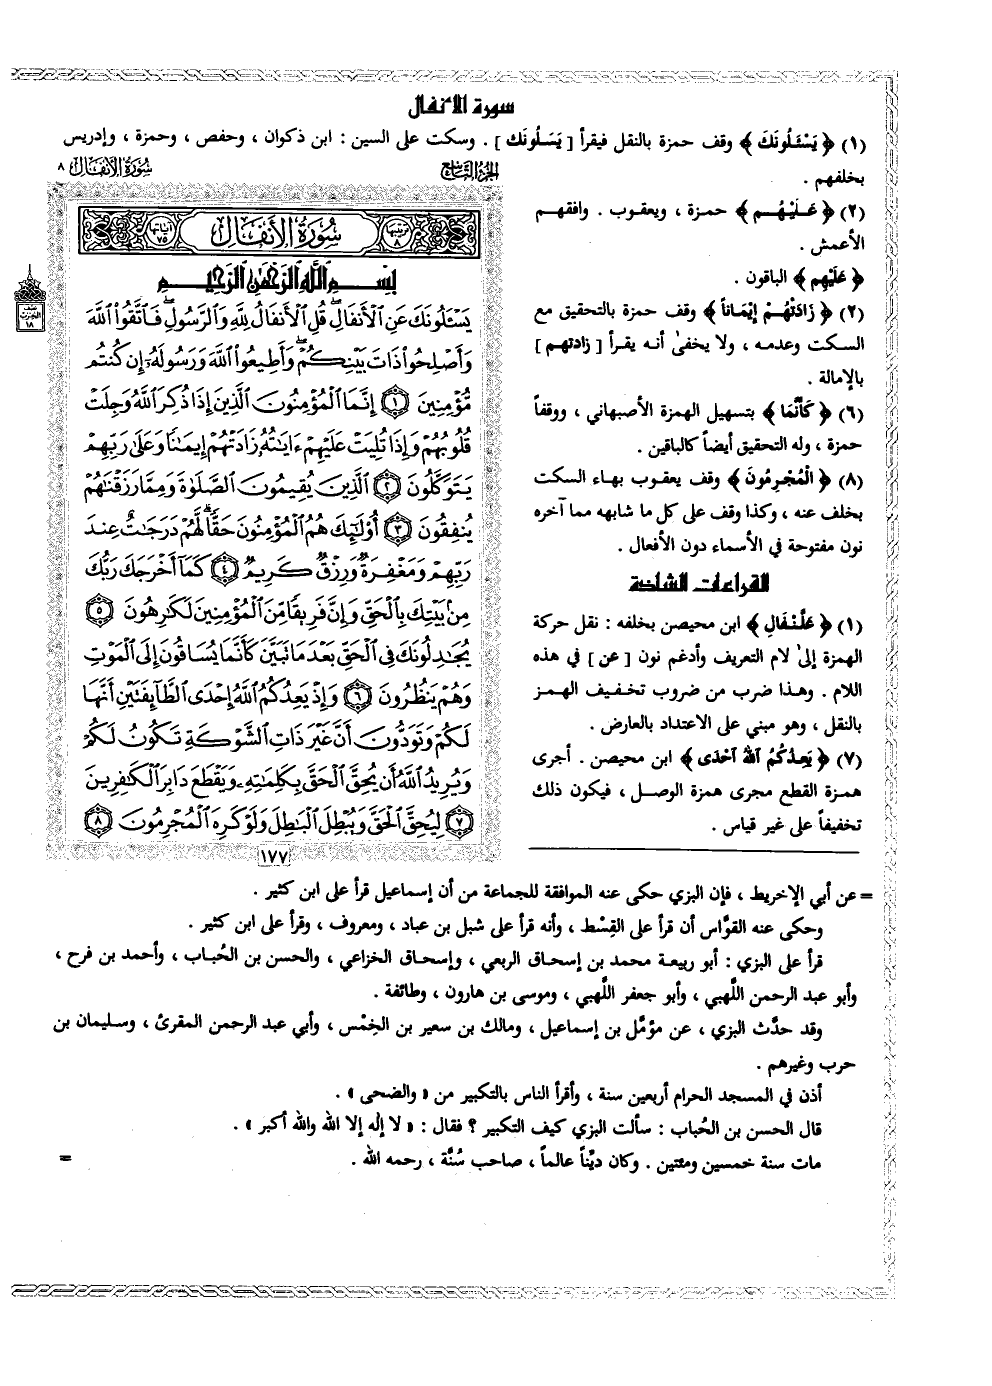 سورة الأنفال
(١) ﴿ يَسْـَٔلُونَكَ ﴾ وقف حمزة بالنقل فيقرأ [ يَسَلُونَك ] . وسكت على السين : ابن ذكوان ، وحفص ، وحمزة ، وإدريس
بخلفهم .
(٢) ﴿ عَلَيْهُـم ﴾ حمزة ، ويعقوب . وافقهم
الأعمش .
﴿ عَلَيْهِم ﴾ الباقون .
(٢) ﴿ زَادَتْهُـمْ إِيْمَاناً ﴾ وقف حمزة بالتحقيق مع
السكت وعدمه ، ولا يخفىٰ أنه يقرأ [ زادتهم ]
بالإمالة .
(٦) ﴿ كَأَنَّمَا ﴾ بتسهيل الهمزة الأصبهاني ، ووقفاً
حمزة ، وله التحقيق أيضاً كالباقين .
(٨) ﴿ الْمُجْرِمُونَ ﴾ وقف يعقوب بهاء السكت
بخلف عنه ، وكذا وقف على كل ما شابهه مما آخره
نون مفتوحة في الأسماء دون الأفعال .
القراءات الشاذة
(١) ﴿ عَلَّنْفَالِ ﴾ ابن محيصن بخلفه : نقل حركة
الهمزة إلىٰ لام التعريف وأدغم نون [ عن ] في هذه
اللام . وهذا ضرب من ضروب تخفيف الهمز
بالنقل ، وهو مبني على الاعتداد بالعارض .
(٧) ﴿ يَعِدُكُمُ اللهُ اَحْدَى ﴾ ابن محيصن . أجرى
همزة القطع مجرى همزة الوصل ، فيكون ذلك
تخفيفاً على غير قياس .
الجزء التاسع
سورة الأنفال ٨
ترتيبها ٨
سُورَةُ الأَنفَال
آياتها ٧٥
بِسْمِ ٱللَّهِ ٱلرَّحْمَٰنِ ٱلرَّحِيمِ
يَسْـَٔلُونَكَ عَنِ ٱلْأَنفَالِۖ قُلِ ٱلْأَنفَالُ لِلَّهِ وَٱلرَّسُولِۖ فَٱتَّقُوا۟ ٱللَّهَ
وَأَصْلِحُوا۟ ذَاتَ بَيْنِكُمْۖ وَأَطِيعُوا۟ ٱللَّهَ وَرَسُولَهُۥٓ إِن كُنتُم
مُّؤْمِنِينَ ١ إِنَّمَا ٱلْمُؤْمِنُونَ ٱلَّذِينَ إِذَا ذُكِرَ ٱللَّهُ وَجِلَتْ
قُلُوبُهُمْ وَإِذَا تُلِيَتْ عَلَيْهِمْ ءَايَٰتُهُۥ زَادَتْهُمْ إِيمَٰنًا وَعَلَىٰ رَبِّهِمْ
يَتَوَكَّلُونَ ٢ ٱلَّذِينَ يُقِيمُونَ ٱلصَّلَوٰةَ وَمِمَّا رَزَقْنَٰهُمْ
يُنفِقُونَ ٣ أُو۟لَٰٓئِكَ هُمُ ٱلْمُؤْمِنُونَ حَقًّاۚ لَّهُمْ دَرَجَٰتٌ عِندَ
رَبِّهِمْ وَمَغْفِرَةٌ وَرِزْقٌ كَرِيمٌ ٤ كَمَآ أَخْرَجَكَ رَبُّكَ
مِنۢ بَيْتِكَ بِٱلْحَقِّ وَإِنَّ فَرِيقًا مِّنَ ٱلْمُؤْمِنِينَ لَكَٰرِهُونَ ٥
يُجَٰدِلُونَكَ فِى ٱلْحَقِّ بَعْدَ مَا تَبَيَّنَ كَأَنَّمَا يُسَاقُونَ إِلَى ٱلْمَوْتِ
وَهُمْ يَنظُرُونَ ٦ وَإِذْ يَعِدُكُمُ ٱللَّهُ إِحْدَى ٱلطَّآئِفَتَيْنِ أَنَّهَا
لَكُمْ وَتَوَدُّونَ أَنَّ غَيْرَ ذَاتِ ٱلشَّوْكَةِ تَكُونُ لَكُمْ
وَيُرِيدُ ٱللَّهُ أَن يُحِقَّ ٱلْحَقَّ بِكَلِمَٰتِهِۦ وَيَقْطَعَ دَابِرَ ٱلْكَٰفِرِينَ
٧ لِيُحِقَّ ٱلْحَقَّ وَيُبْطِلَ ٱلْبَٰطِلَ وَلَوْ كَرِهَ ٱلْمُجْرِمُونَ ٨
١٧٧
نصف
الحزب
١٨
= عن أبي الإخريط ، فإن البزي حكى عنه الموافقة للجماعة من أن إسماعيل قرأ على ابن كثير .
وحكى عنه القوَّاس أن قرأ على القِسْط ، وأنه قرأ على شبل بن عباد ، ومعروف ، وقرأ على ابن كثير .
قرأ على البزي : أبو ربيعة محمد بن إسحاق الربعي ، وإسحاق الخزاعي ، والحسن بن الحُباب ، وأحمد بن فرح ،
وأبو عبد الرحمن اللَّهبي ، وأبو جعفر اللَّهبي ، وموسى بن هارون ، وطائفة .
وقد حدَّث البزي ، عن مؤمَّل بن إسماعيل ، ومالك بن سعير بن الخِمْس ، وأبي عبد الرحمن المقرئ ، وسليمان بن
حرب وغيرهم .
أذن في المسجد الحرام أربعين سنة ، وأقرأ الناس بالتكبير من « والضحى » .
قال الحسن بن الحُباب : سألت البزي كيف التكبير ؟ فقال : « لا إلٰه إلا الله والله أكبر » .
مات سنة خمسين ومئتين . وكان ديِّناً عالماً ، صاحب سُنَّة ، رحمه الله . =